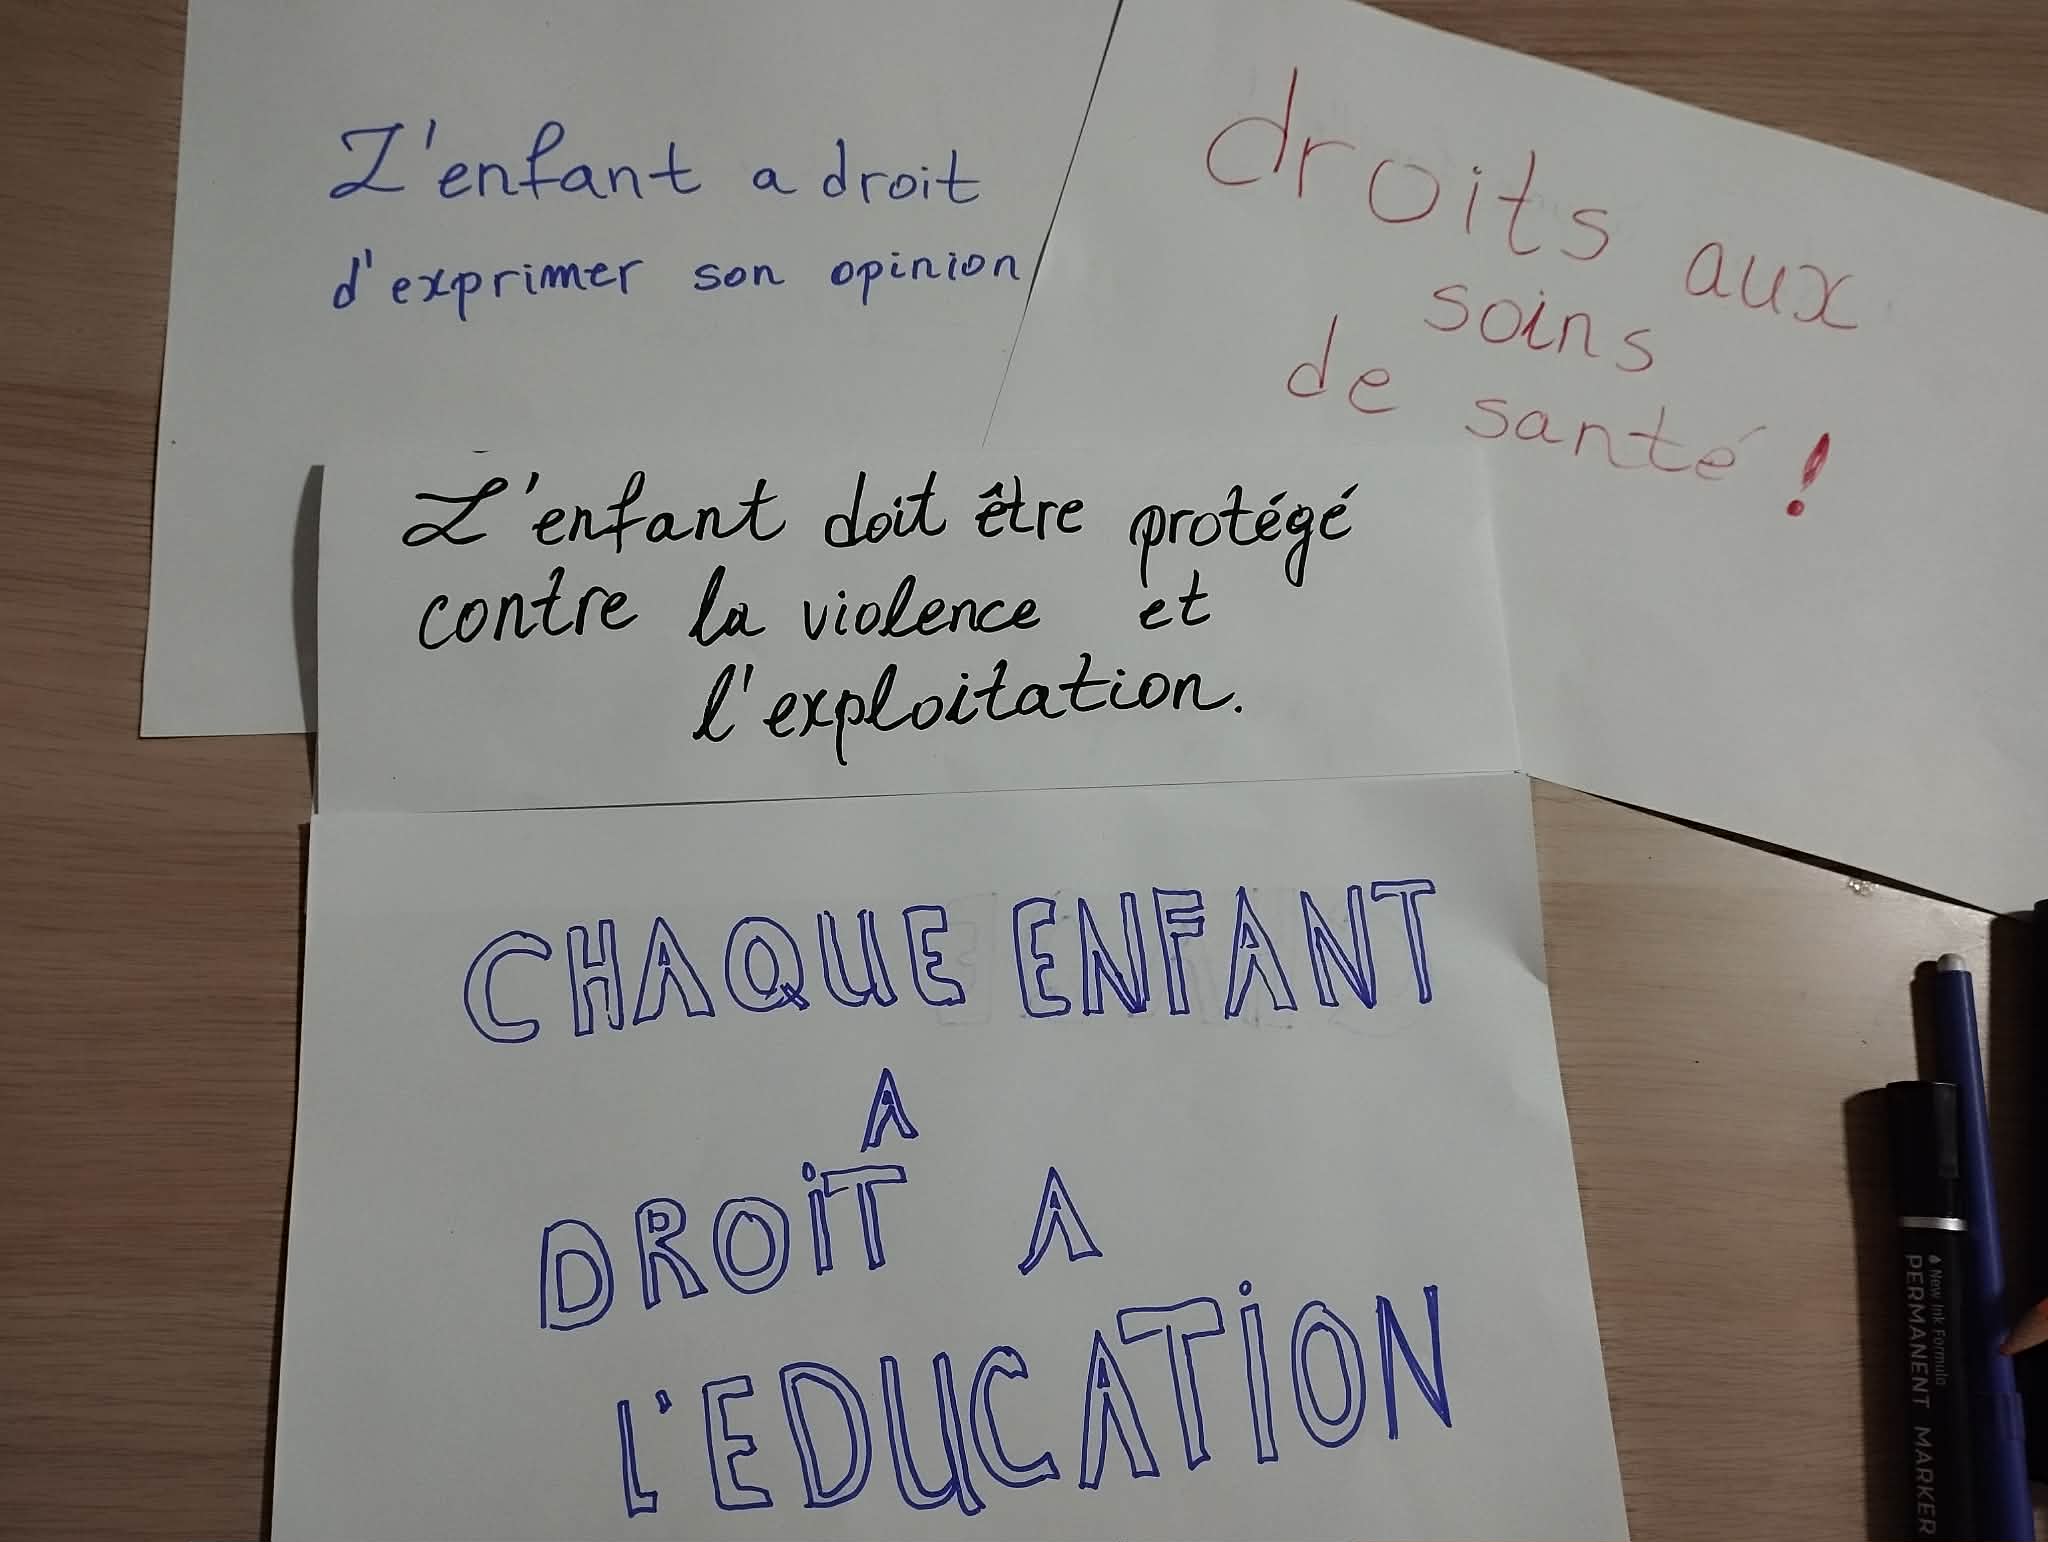 L'enfant a droit
d'exprimer son opinion
droits aux
soins
de santé !
L'enfant doit être protégé
contre la violence et
l'exploitation.
CHAQUE ENFANT
A
DROIT A
L'EDUCATION
New Ink Formula
PERMANENT MARKER